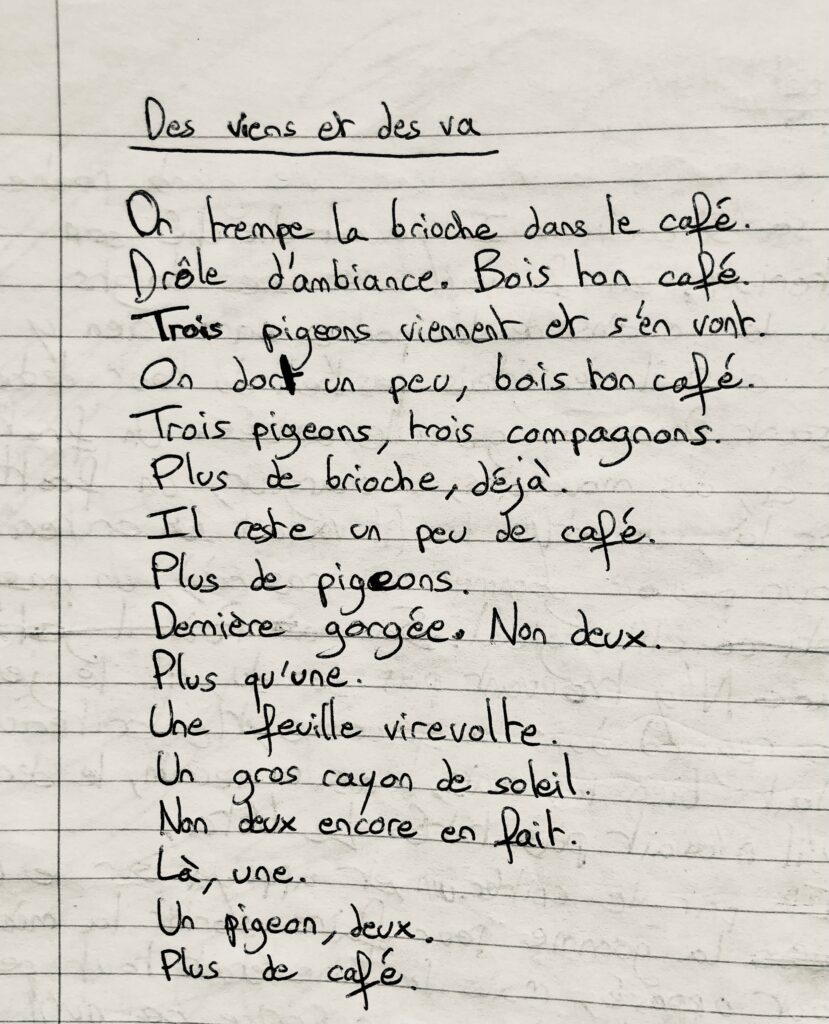 Des viens et des va
On trempe la brioche dans le café.
Drôle d'ambiance. Bois ton café.
Trois pigeons viennent et s'en vont.
On dort un peu, bois ton café.
Trois pigeons, trois compagnons.
Plus de brioche, déjà.
Il reste un peu de café.
Plus de pigeons.
Dernière gorgée. Non deux.
Plus qu'une.
Une feuille virevolte.
Un gros rayon de soleil.
Non deux encore en fait.
Là, une.
Un pigeon, deux.
Plus de café.